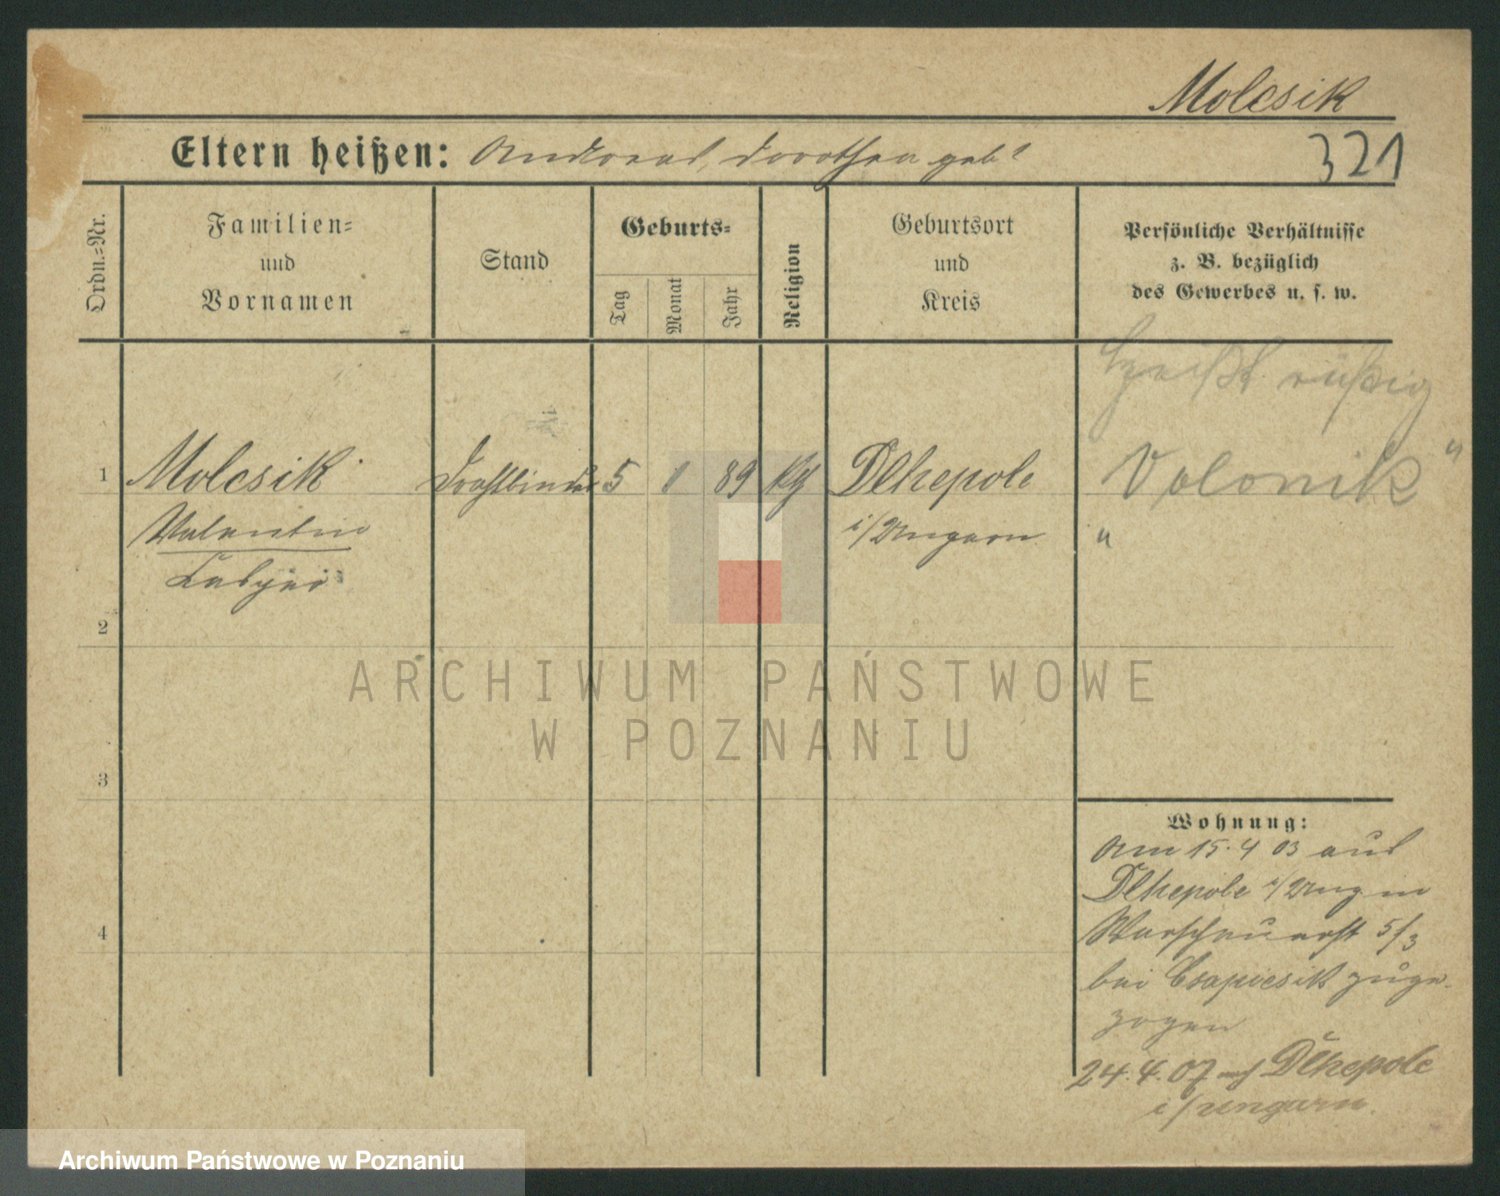 Molcsik
321
Eltern heißen: Andreas, Dorothea geb?
Ordn.=Nr.
Familien=
und
Vornamen
Stand
Geburts=
Tag
Monat
Jahr
Religion
Geburtsort
und
Kreis
Persönliche Verhältnisse
z. B. bezüglich
des Gewerbes u. s. w.
1 Molcsik Drahtbinder 5 1 89 kth Dlhepole Volonik "
Valentin i/Ungarn "
2
3
4
Wohnung:
Am 15.4 03 aus
Dlhepole i/Ung. in
Warschauerstr 5/3
bei Csapiesik zuge-
zogen
24.4.07 auf Dlhepole
i/Ungarn.
ARCHIWUM PAŃSTWOWE
W POZNANIU
Archiwum Państwowe w Poznaniu